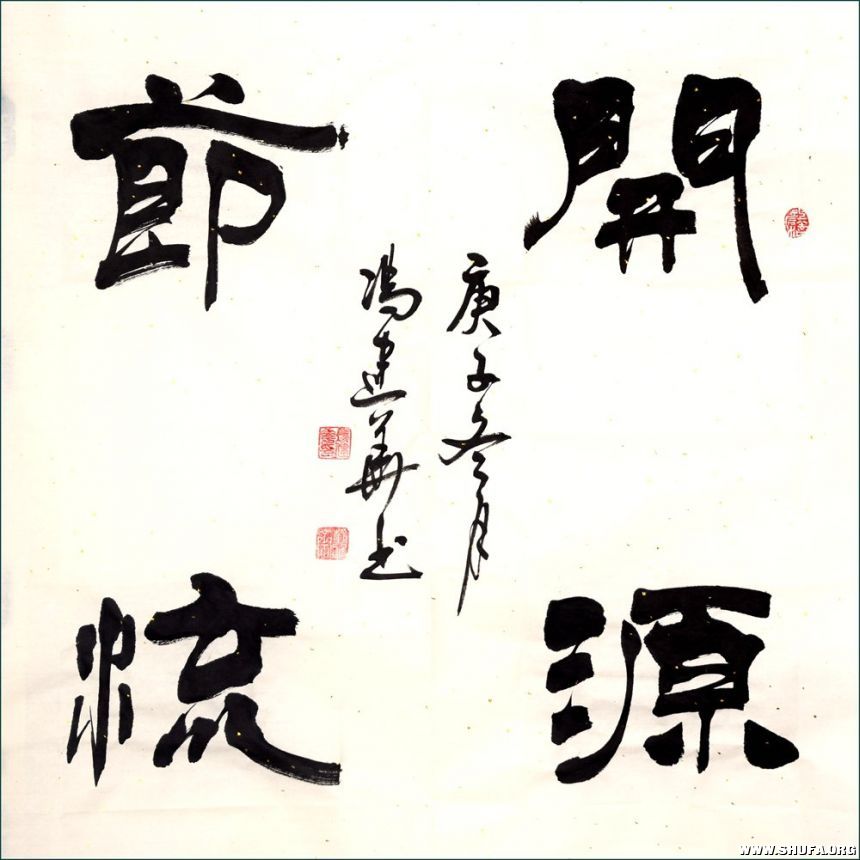 開源
節流
庚子冬月
馮建華书
WWW.SHUFA.ORG